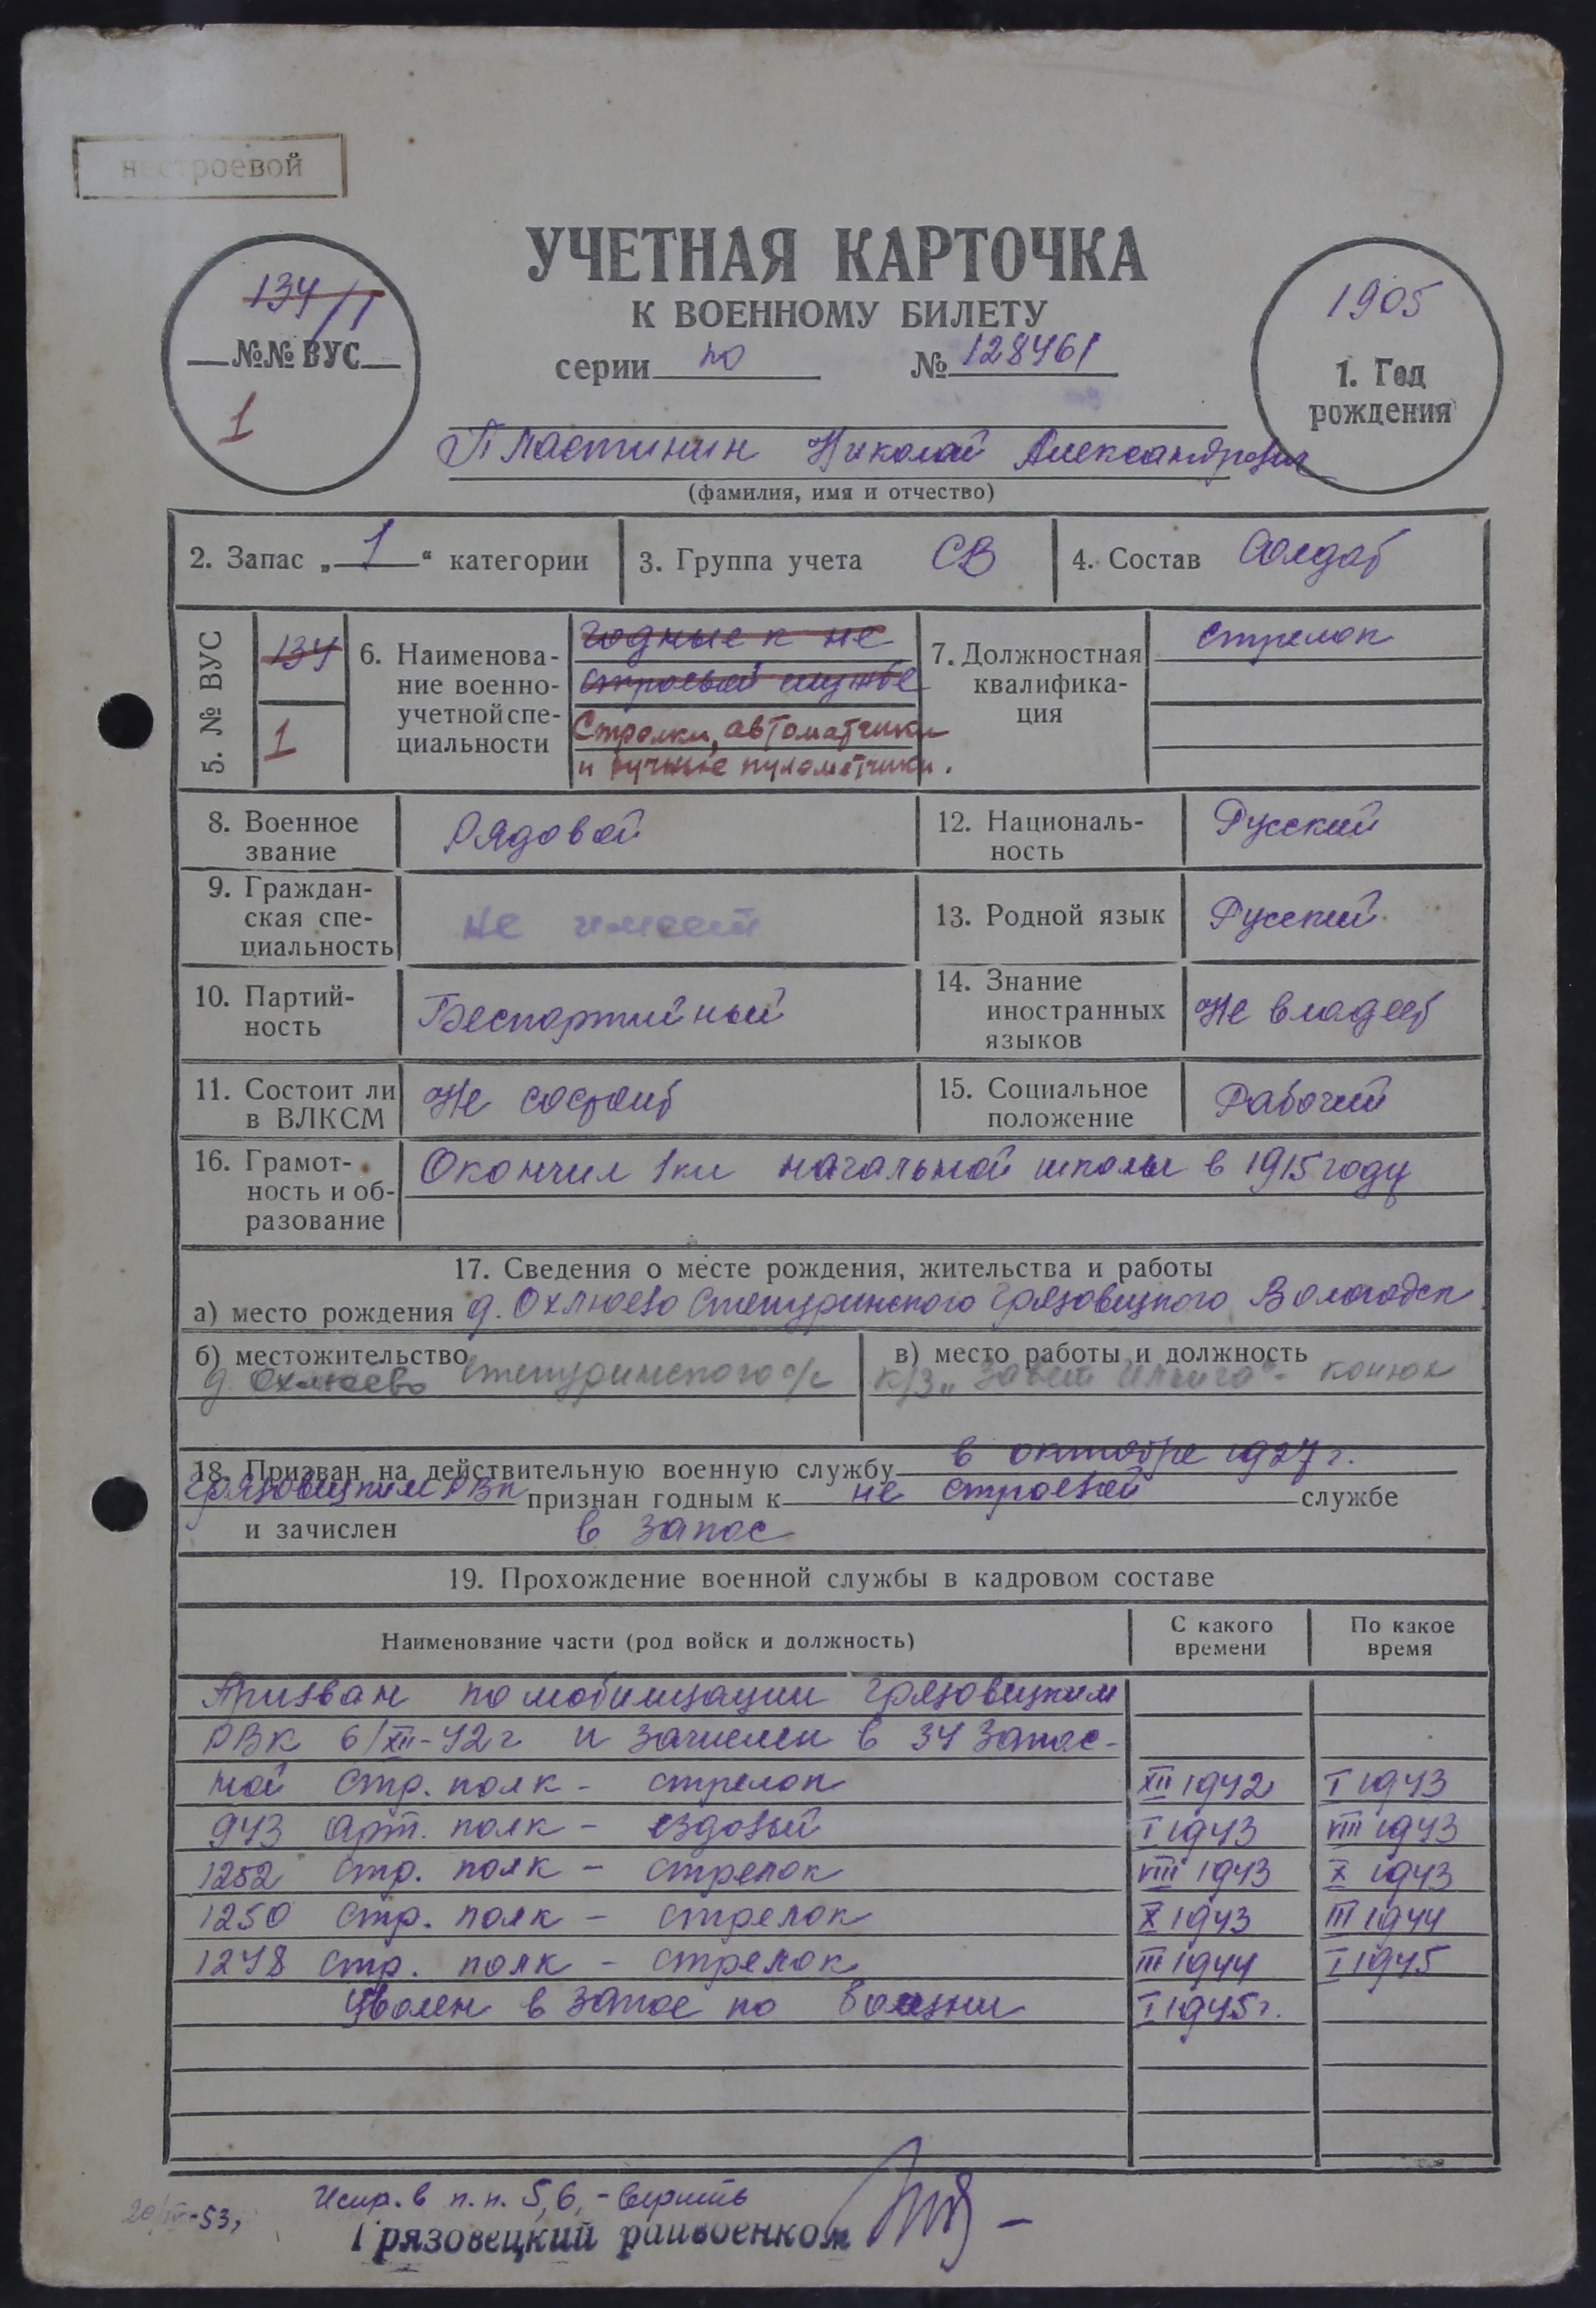 нестроевой
УЧЕТНАЯ КАРТОЧКА
К ВОЕННОМУ БИЛЕТУ
серии по № 128461
134/1
№№ ВУС
1
1905
1. Год
рождения
Пластинин Николай Александрович
(фамилия, имя и отчество)
2. Запас „1“ категории
3. Группа учета СВ
4. Состав Солдат
5. № ВУС
134
1
6. Наименова-
ние военно-
учетной спе-
циальности
годные к не
строевой службе
Стрелки, автоматчики
и ручные пулеметчики.
7. Должностная
квалифика-
ция
стрелок
8. Военное
звание
Рядовой
12. Националь-
ность
Русский
9. Граждан-
ская спе-
циальность
не имеет
13. Родной язык
Русский
10. Партий-
ность
Беспартийный
14. Знание
иностранных
языков
Не владеет
11. Состоит ли
в ВЛКСМ
Не состоит
15. Социальное
положение
Рабочий
16. Грамот-
ность и об-
разование
Окончил 1 кл начальной школы в 1915 году
17. Сведения о месте рождения, жительства и работы
а) место рождения д. Охлюево Степуринского Грязовецкого Вологодск
б) местожительство
д. Охлюево Степуринского с/с
в) место работы и должность
к/з „Завет Ильича“ - конюх
18. Призван на действительную военную службу в октябре 1927 г.
Грязовецким РВК признан годным к не строевой службе
и зачислен в запас
19. Прохождение военной службы в кадровом составе
Наименование части (род войск и должность)
С какого
времени
По какое
время
Призван по мобилизации Грязовецким
РВК 6/XII-42 г и зачислен в 34 запас-
ной стр. полк - стрелок XII 1942 I 1943
943 арт. полк - ездовый I 1943 VIII 1943
1252 стр. полк - стрелок VIII 1943 X 1943
1250 стр. полк - стрелок X 1943 III 1944
1248 стр. полк - стрелок III 1944 I 1945
Уволен в запас по болезни I 1945 г.
Испр. в п.п. 5, 6, - верить
Грязовецкий райвоенком